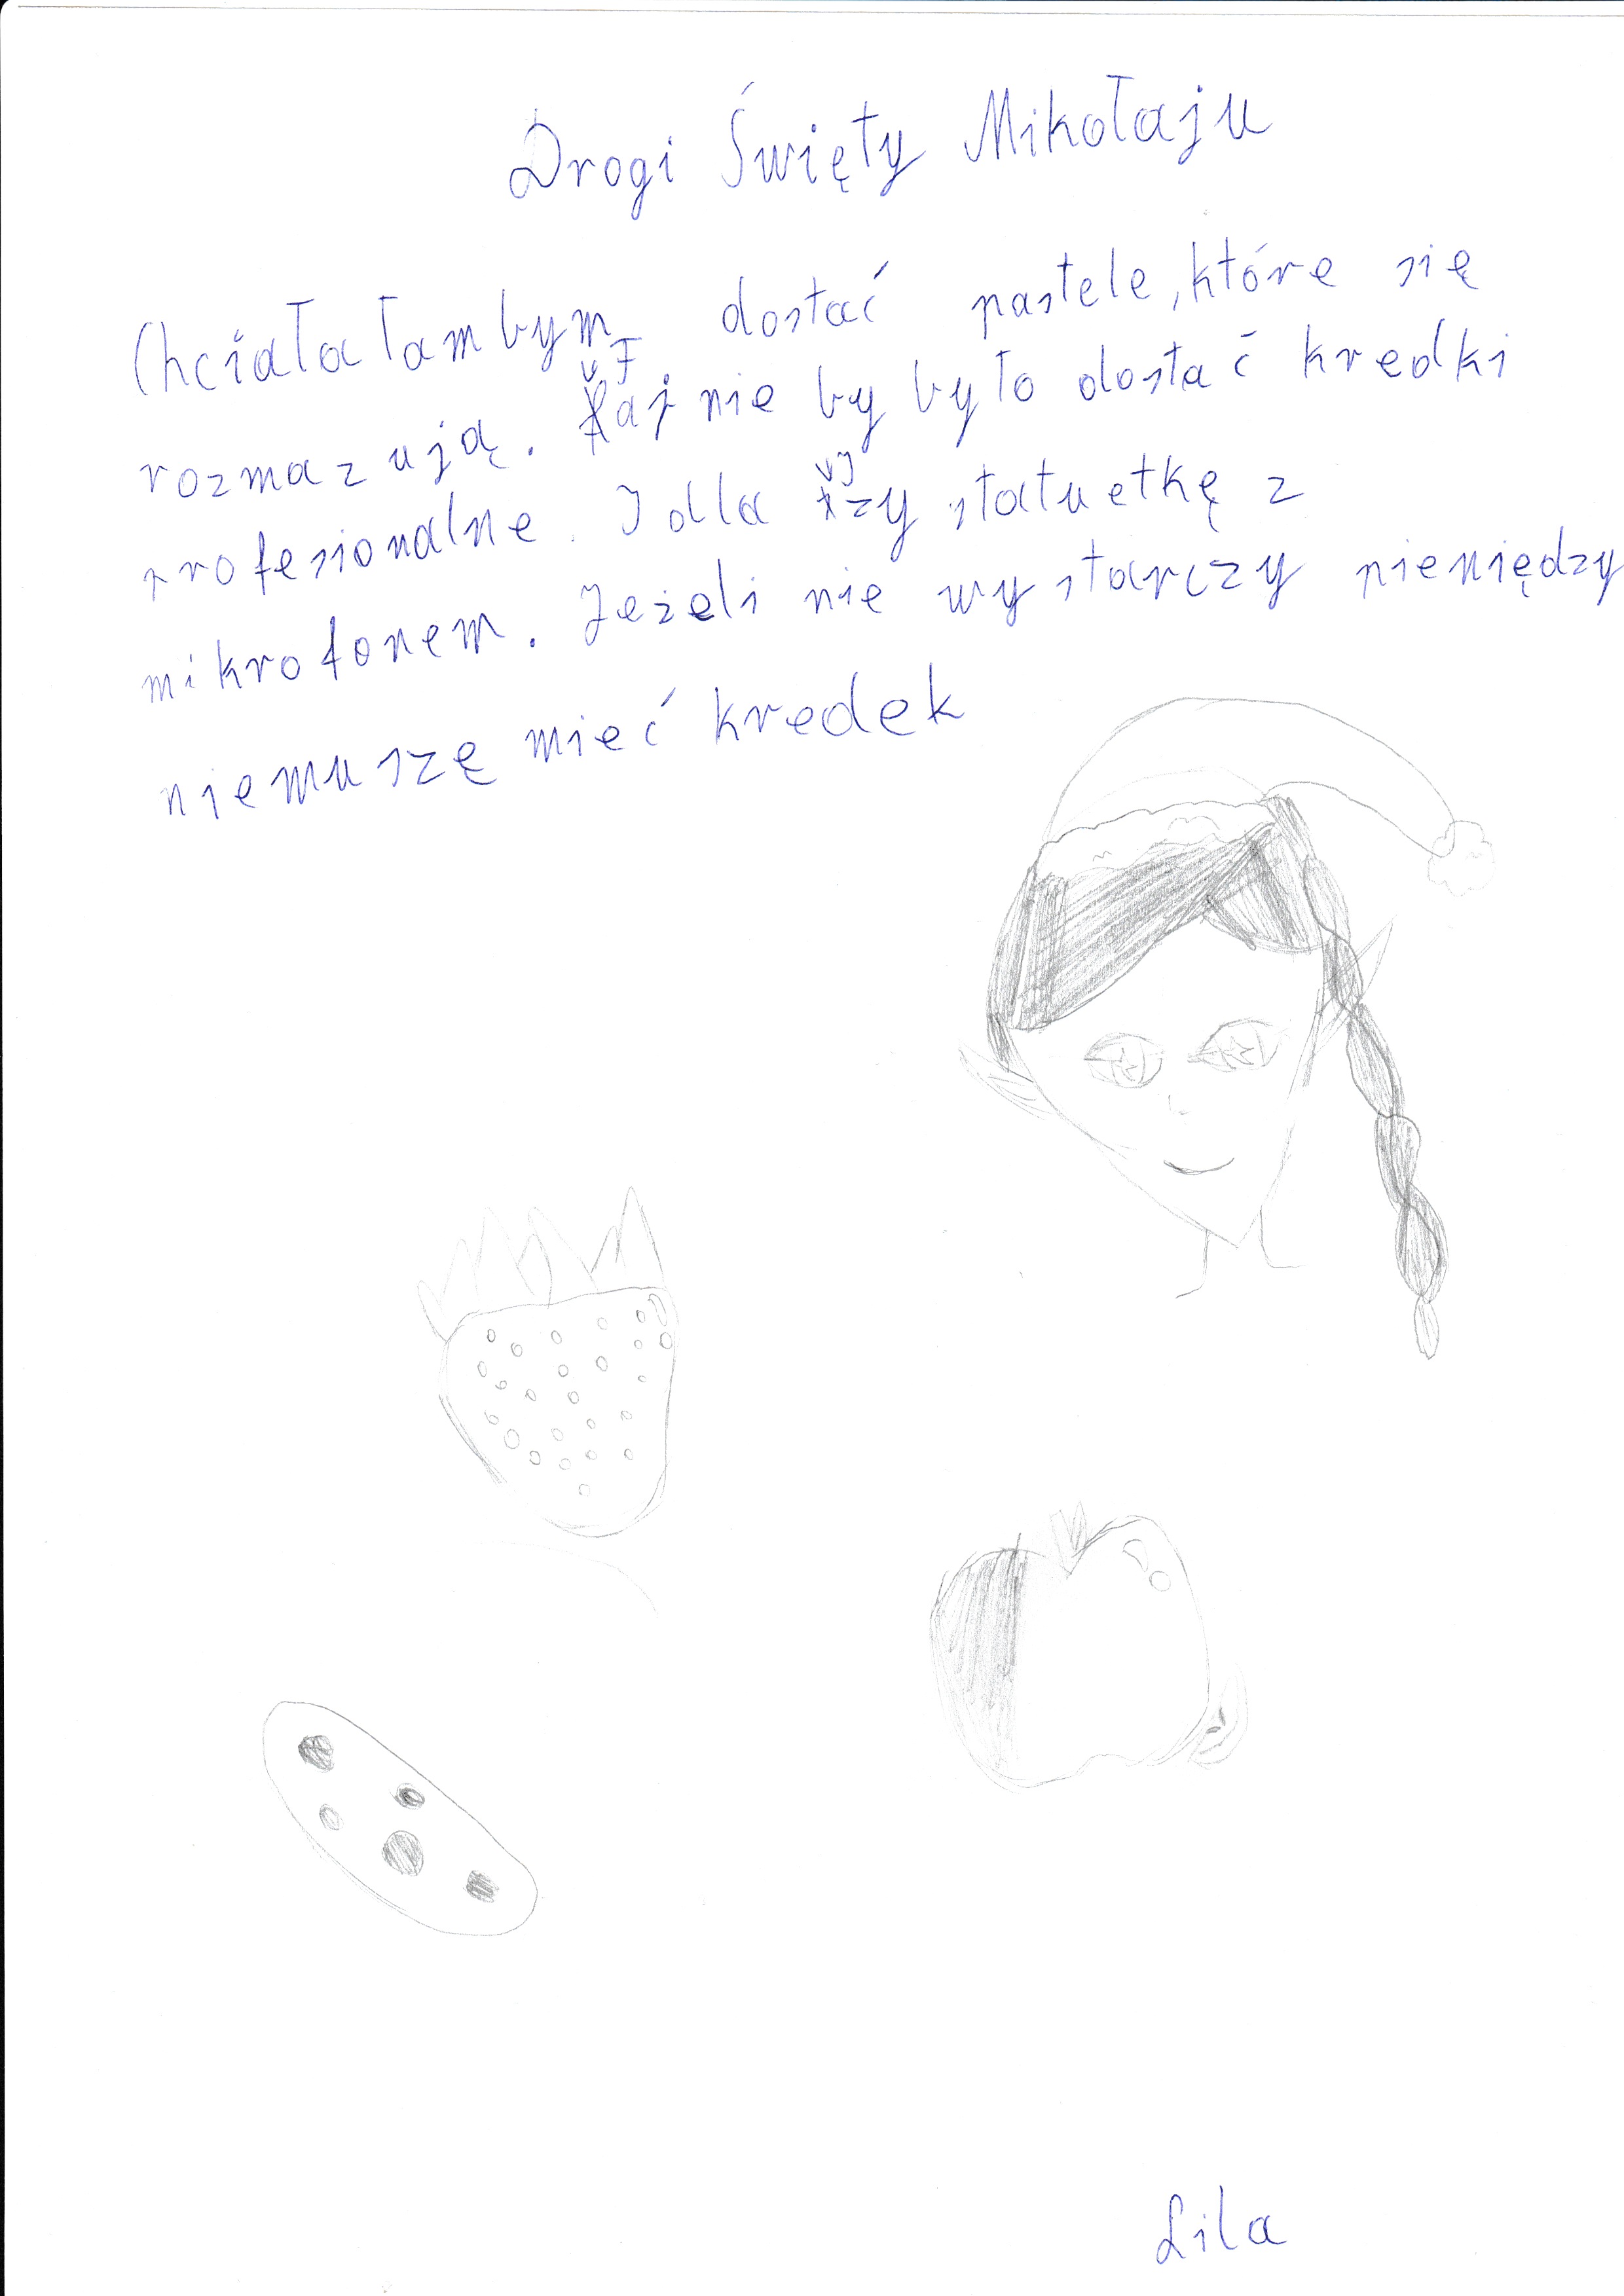 Drogi Święty Mikołaju
Chciałałambym dostać pastele, które się
rozmazują. Fajnie by było dostać kredki
profesionalne. I dla Izy statuetkę z
mikrofonem. Jeżeli nie wystarczy pieniędzy
niemuszę mieć kredek
Lila